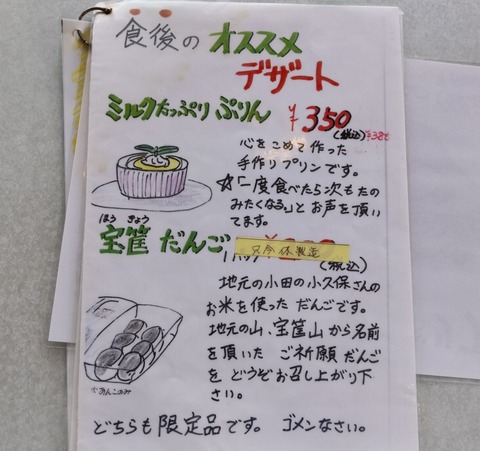 食後の オススメ
デザート
ミルクたっぷり ぷりん ¥350
(税込)
心をこめて作った
手作りプリンです。
☆「一度食べたら次もたの
みたくなる。」とお声を頂い
てます。
ほう きょう
宝筐 だんご
只今休製造
(税込)
地元の小田の小久保さんの
お米を使った だんごです。
地元の山、宝筐山から名前
を頂いた ご祈願だんごを
を どうぞお召し上がり下
さい。
あんこのみ
どちらも限定品です。 ゴメンなさい。